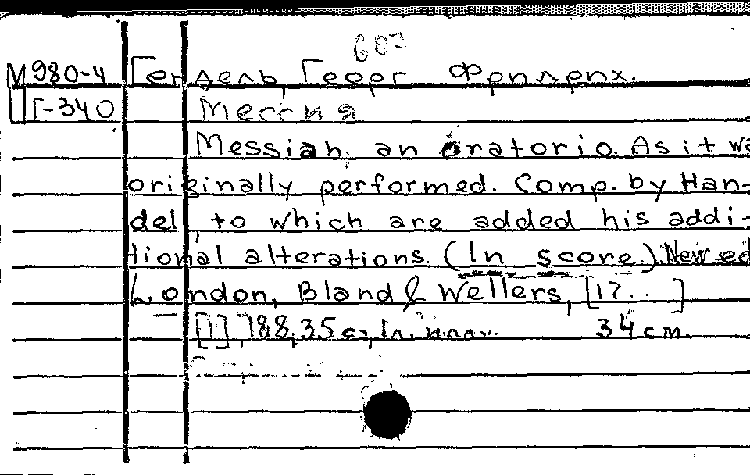 603
М980-4 Гендель, Георг Фридрих.
Г-340 Мессия
Messiah, an oratorio. As it wa
originally performed. Comp. by Han-
del, to which are added his addi-
tional alterations. (In score). New ed
London, Bland & Wellers, [17. . ]
[1], 188, 35 с., 1 л. 34 см.